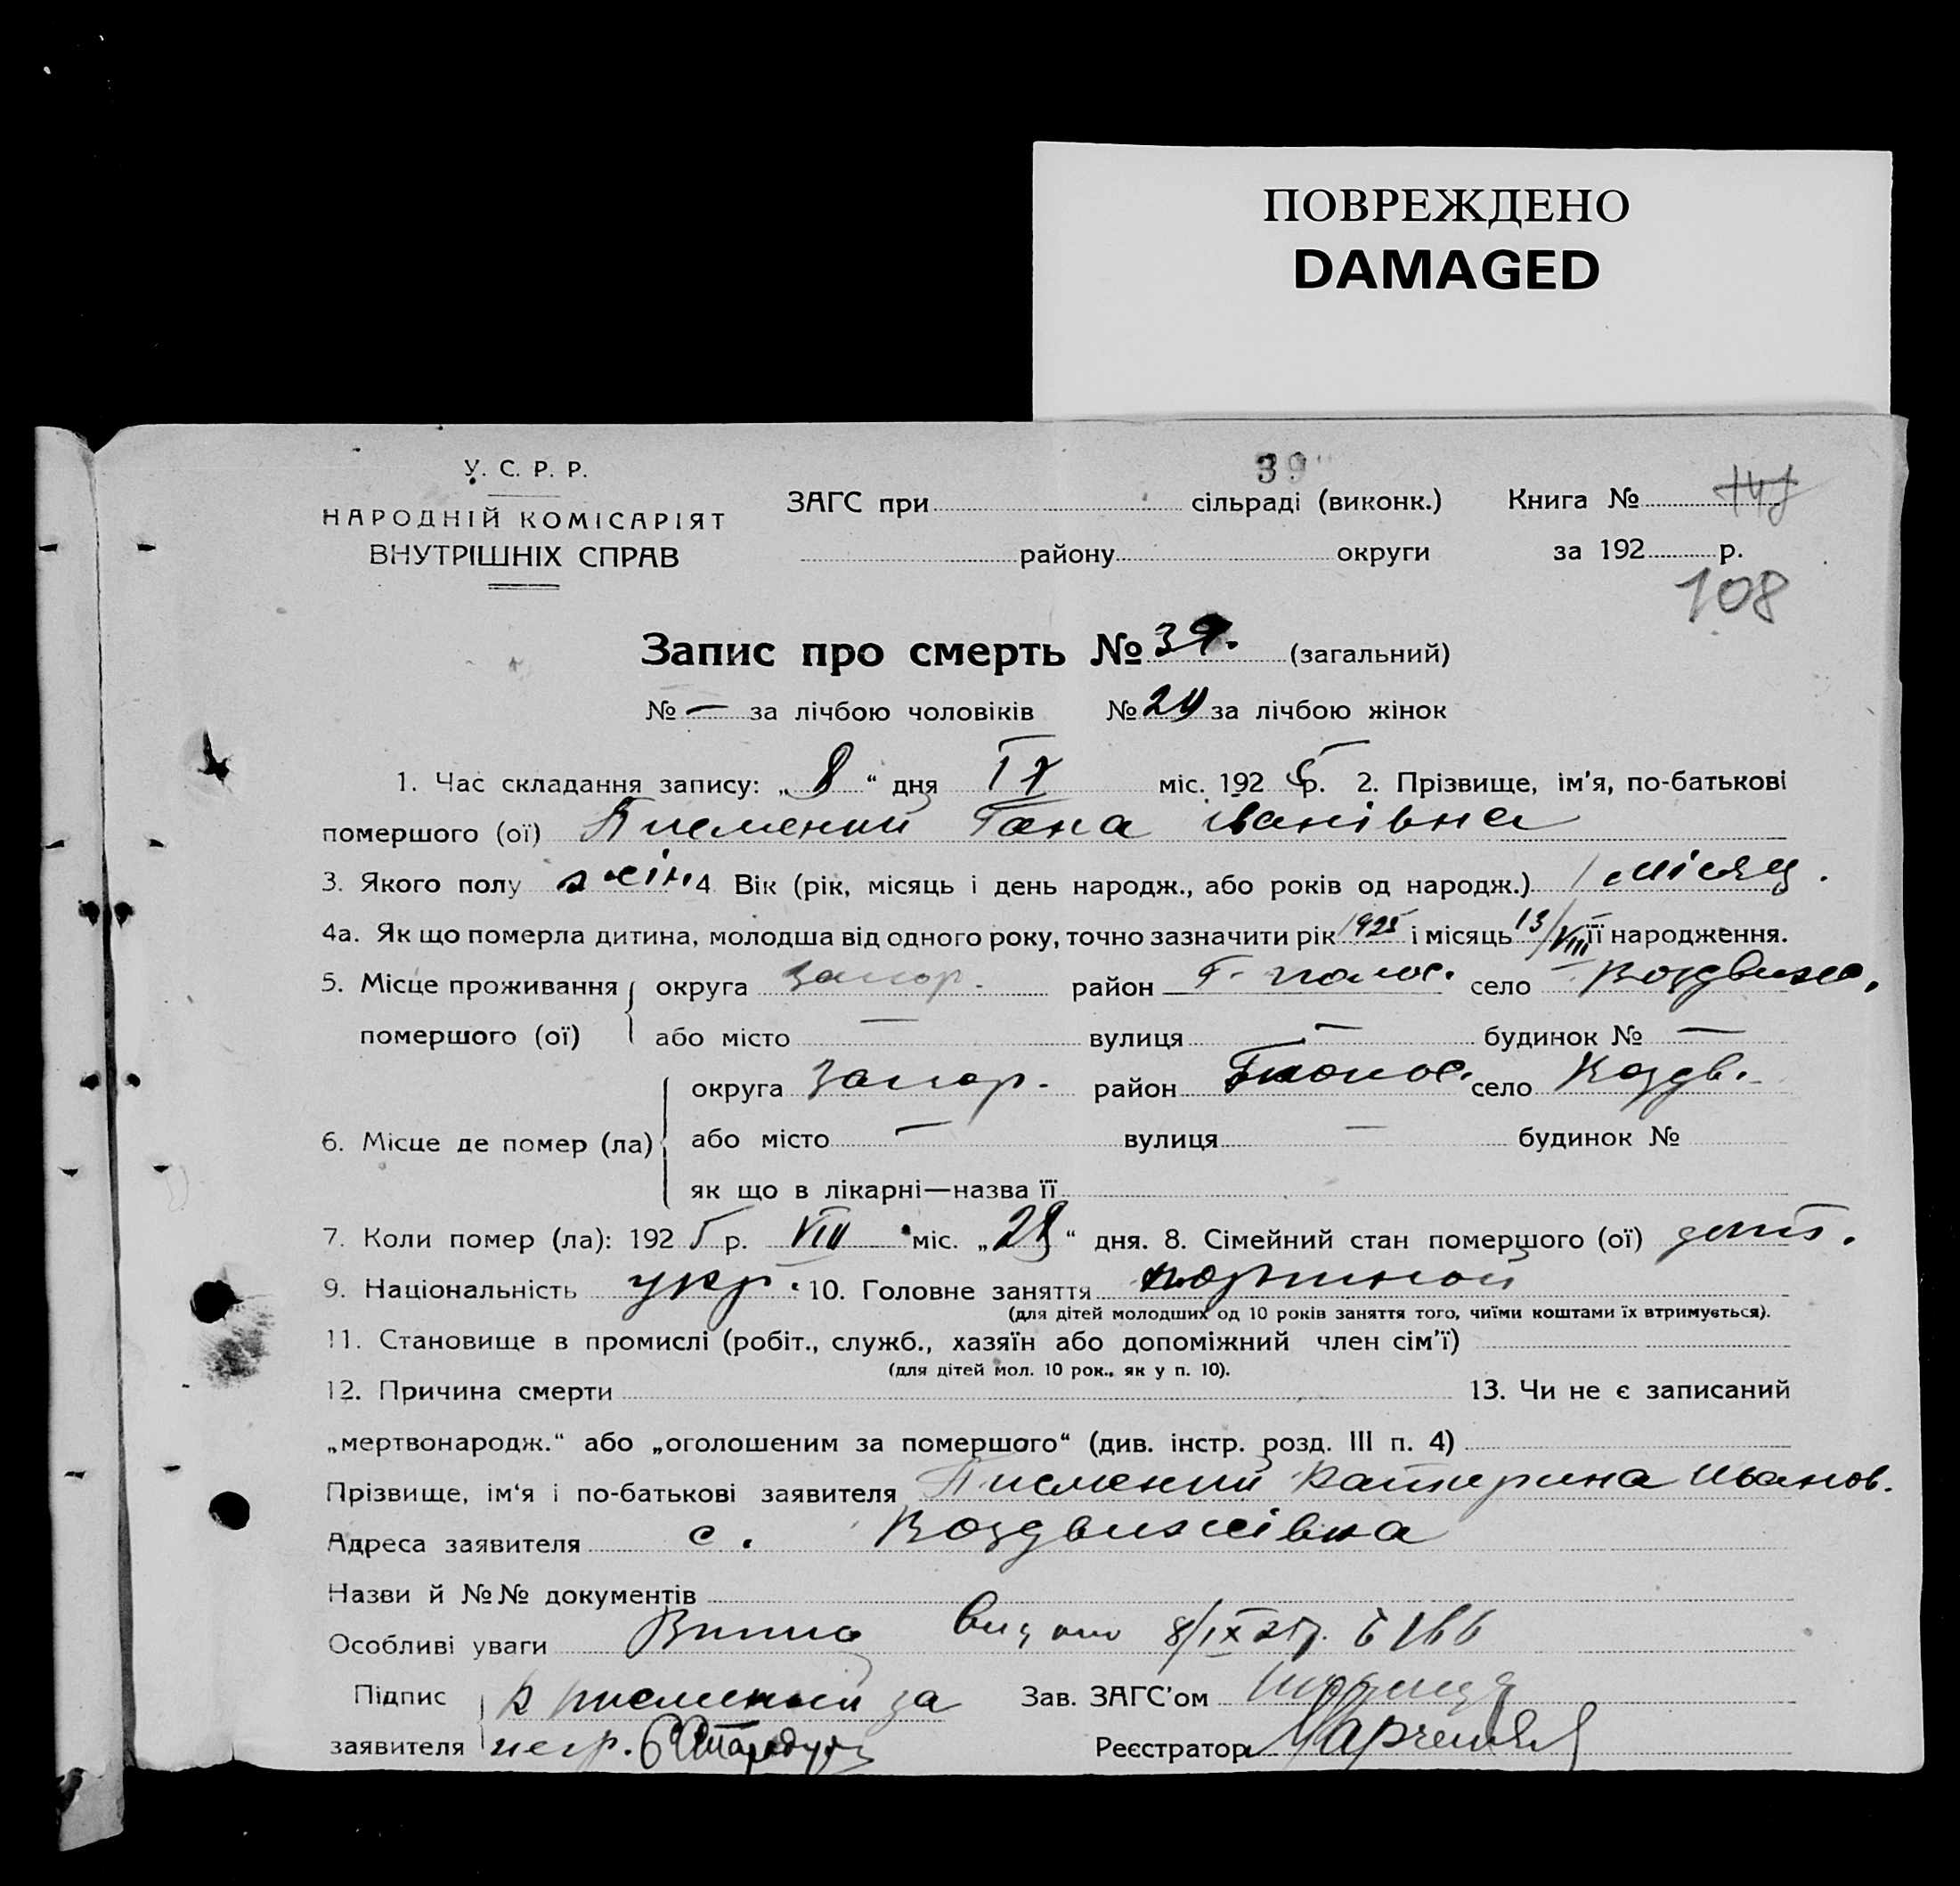 ПОВРЕЖДЕНО
DAMAGED
У. С. Р. Р.
НАРОДНІЙ КОМІСАРІЯТ
ВНУТРІШНІХ СПРАВ
39
ЗАГС при сільраді (виконк.) Книга №
району округи за 192 р.
108
Запис про смерть № 39. (загальний)
№ — за лічбою чоловіків № 24 за лічбою жінок
1. Час складання запису: „8“ дня IX міс. 192 5 р. 2. Прізвище, ім'я, по-батькові
помершого (ої) Писмений Гана іванівна
3. Якого полу жін 4 Вік (рік, місяць і день народж., або років од народж.) 1 місяц.
4а. Як що померла дитина, молодша від одного року, точно зазначити рік 1925 і місяць 13/VIII її народження.
5. Місце проживання округа Запор. район Г. полос. село Воздвиж.
помершого (ої) або місто — вулиця — будинок № —
округа Запор. район село Воздв.
6. Місце де помер (ла) або місто — вулиця — будинок №
як що в лікарні—назва її
7. Коли помер (ла): 192 5 р. VIII міс. „28“ дня. 8. Сімейний стан помершого (ої) дит.
9. Національність укр. 10. Головне заняття
(для дітей молодших од 10 років заняття того, чиїми коштами їх втримується).
11. Становище в промислі (робіт., служб., хазяїн або допоміжний член сім'ї)
(для дітей мол. 10 рок., як у п. 10).
12. Причина смерти 13. Чи не є записаний
„мертвонародж.“ або „оголошеним за помершого“ (див. інстр. розд. III п. 4)
Прізвище, ім'я і по-батькові заявителя Писмений Катерина Иванов.
Адреса заявителя с. Воздвижівка
Назви й №№ документів
Особливі уваги 8/IX 25р.
Підпис Писмений за Зав. ЗАГС'ом
заявителя негр. Реєстратор